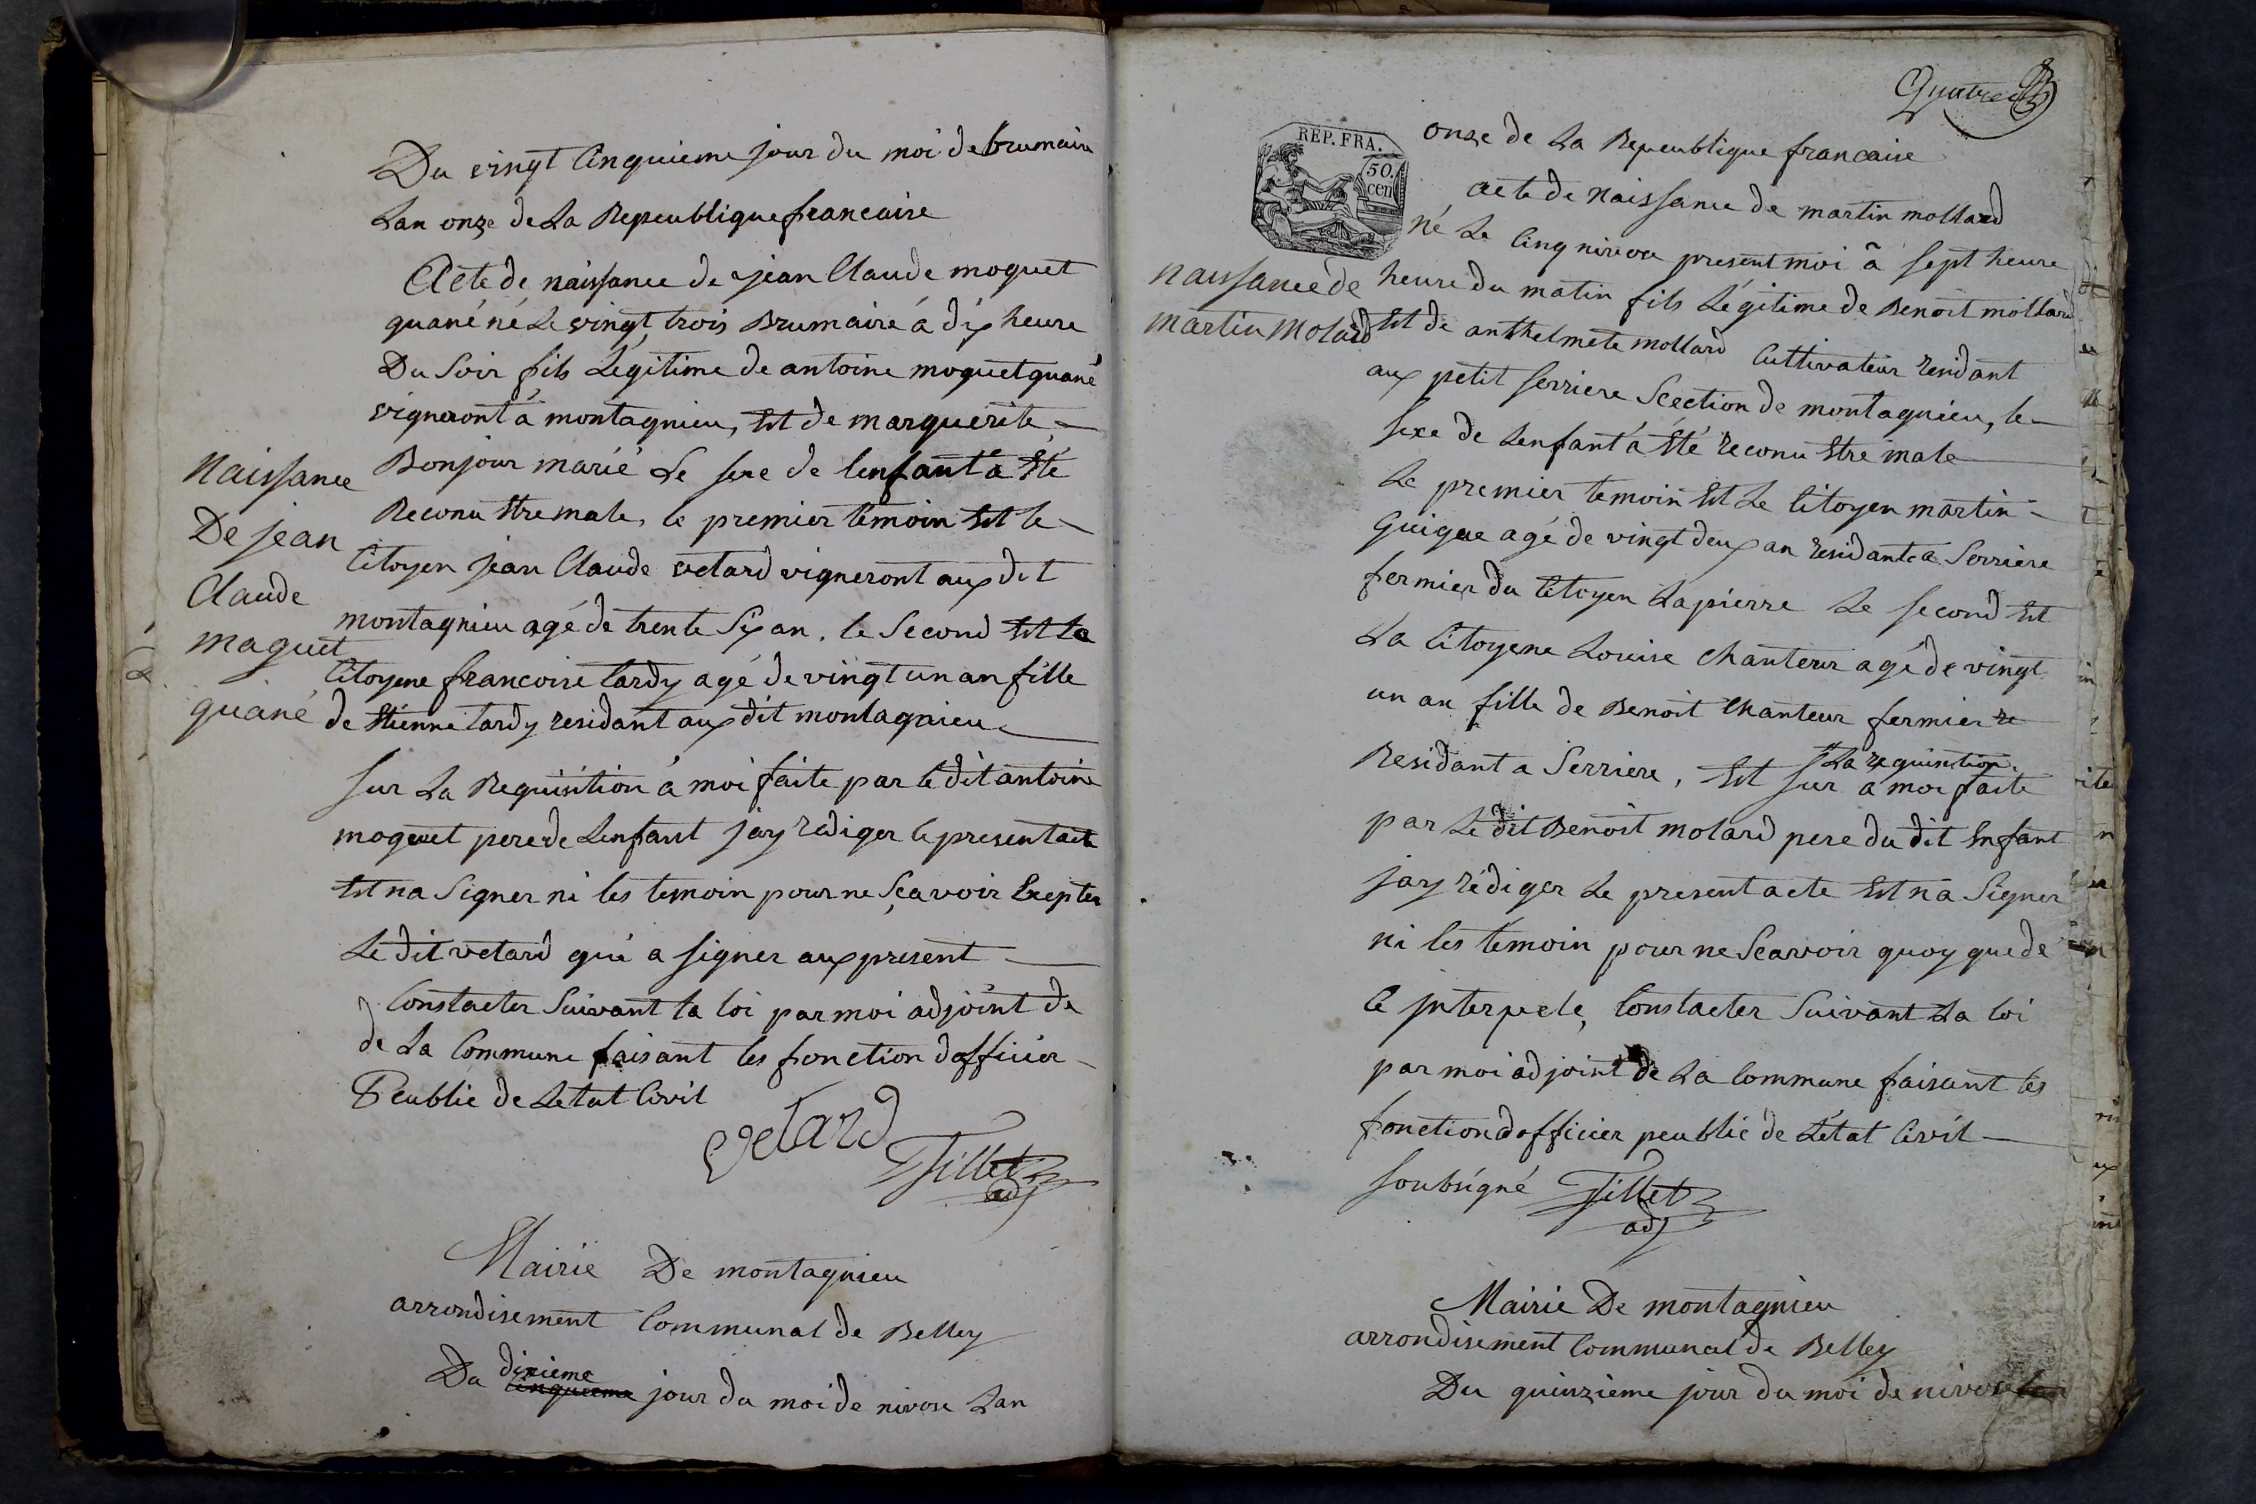 Du vingt Cinquieme jour du moi de brumaire
Lan onze de La Repeublique francaise
Acte de naissance de jean Claude moquet
quané né Le vingt trois Brumaire á dix heure
Du Soir fils Légitime de antoine moquet quané
vigneront á montagnieu, Est de marguerite
Bonjour marié Le sexe de lenfant á Eté
Reconu Etre male, le premier témoin Est le
Citoyen jean Claude vetard vigneront aux dit
montagnieu agé de trente Six an. le Second Est la
Citoyene francoise tardy agé de vingt un an fille
de Etienne tardy residant aux dit montagnieu
Sur La Requisition á moi faite par le dit antoine
moquet pere de Lenfant jay rédiger le present acte
Est na Signer ni les temoin pour ne Sçavoir Exepter
Le dit vetard qui a signer aux present
Constacter Suivant la loi par moi adjoint de
de La Commune faisant les fonction dofficier
Peublic de Letat Civil
vetard
Tillet
adj
Naissance
De jean
Claude
maquet
quané
Mairie De montagnieu
arrondisement Communal de Belley
dixieme
Du cinquieme jour du moi de nivose Lan
Quatre
REP. FRA.
50.
cen
onze de La Repeublique francaise
acte de Naissance de martin mollard
né Le Cinq nivose present moi â sept heure
heure du matin fils Légitime de Benoit mollard
Est de anthelmete mollard Cultivateur residant
aux petit serriere Scection de montagnieu, le
sexe de Lenfant á Eté reconu Etre male
Le premier temoin Est Le Citoyen martin
Guigue agé de vingt deux an residant a Serriere
fermier du Citoyen Lapierre Le second Est
La Citoyene Louise Chanteur agé de vingt
un an fille de Benoit Chanteur fermier re
La requisition
Residant a Serriere, Est sur a moi faite
par Le dit Benoit molard pere du dit Enfant
jay rédiger Le present acte Est na Signer
ni les temoin pour ne Scavoir quoy que de
Ce jnterpelé, Constacter Suivant La loi
par moi adjoint de La Commune faisant les
fonction dofficier peublic de Létat Civil
soubsigné Tillet
adj
Naissance de
martin Molard
Mairie De montagnieu
arrondisement Communal de Belley
Du quinzieme jour du moi de nivose Lan